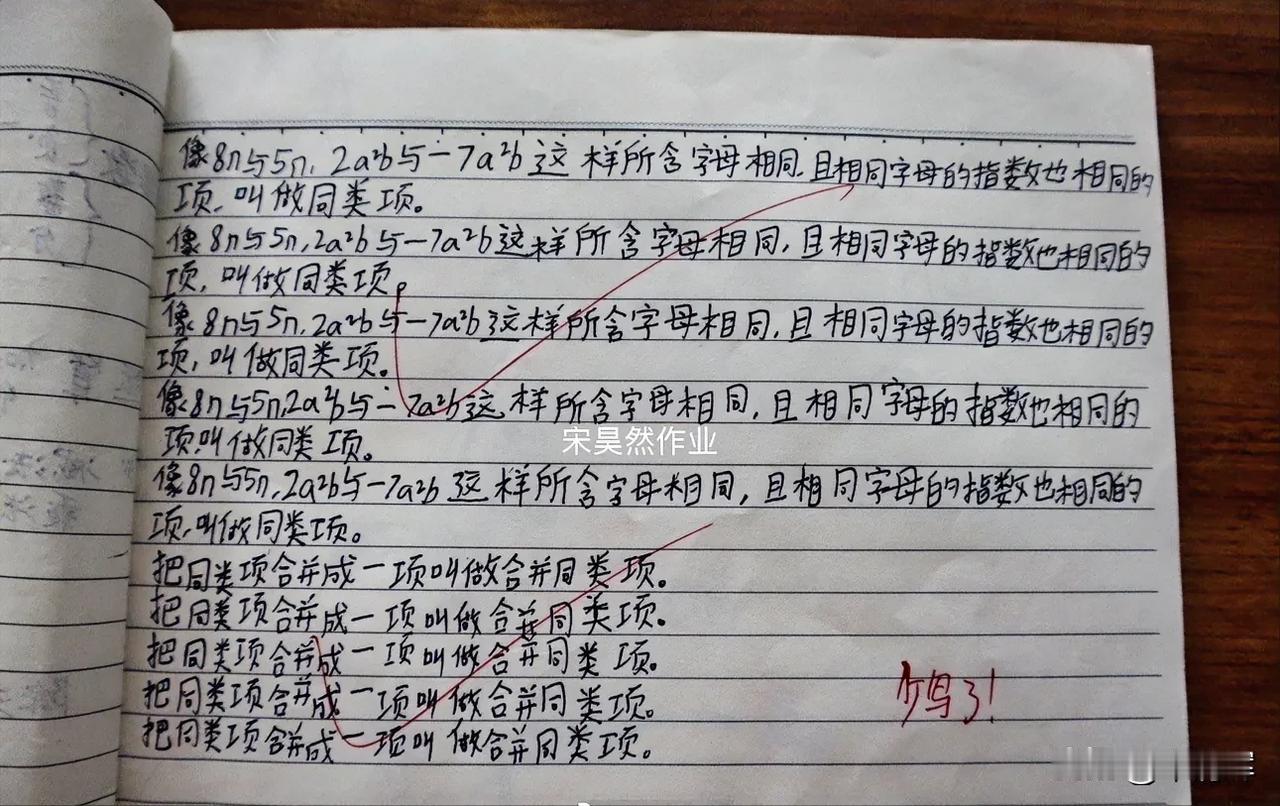 像8n与5n,2a²b与-7a²b这样所含字母相同,且相同字母的指数也相同的
项,叫做同类项。
像8n与5n,2a²b与-7a²b这样所含字母相同,且相同字母的指数也相同的
项,叫做同类项。
像8n与5n,2a²b与-7a²b这样所含字母相同,且相同字母的指数也相同的
项,叫做同类项。
像8n与5n,2a²b与-7a²b这样所含字母相同,且相同字母的指数也相同的
项,叫做同类项。
宋昊然作业
像8n与5n,2a²b与-7a²b这样所含字母相同,且相同字母的指数也相同的
项,叫做同类项。
把同类项合并成一项叫做合并同类项。
把同类项合并成一项叫做合并同类项。
把同类项合并成一项叫做合并同类项。
把同类项合并成一项叫做合并同类项。
把同类项合并成一项叫做合并同类项。
少写了!